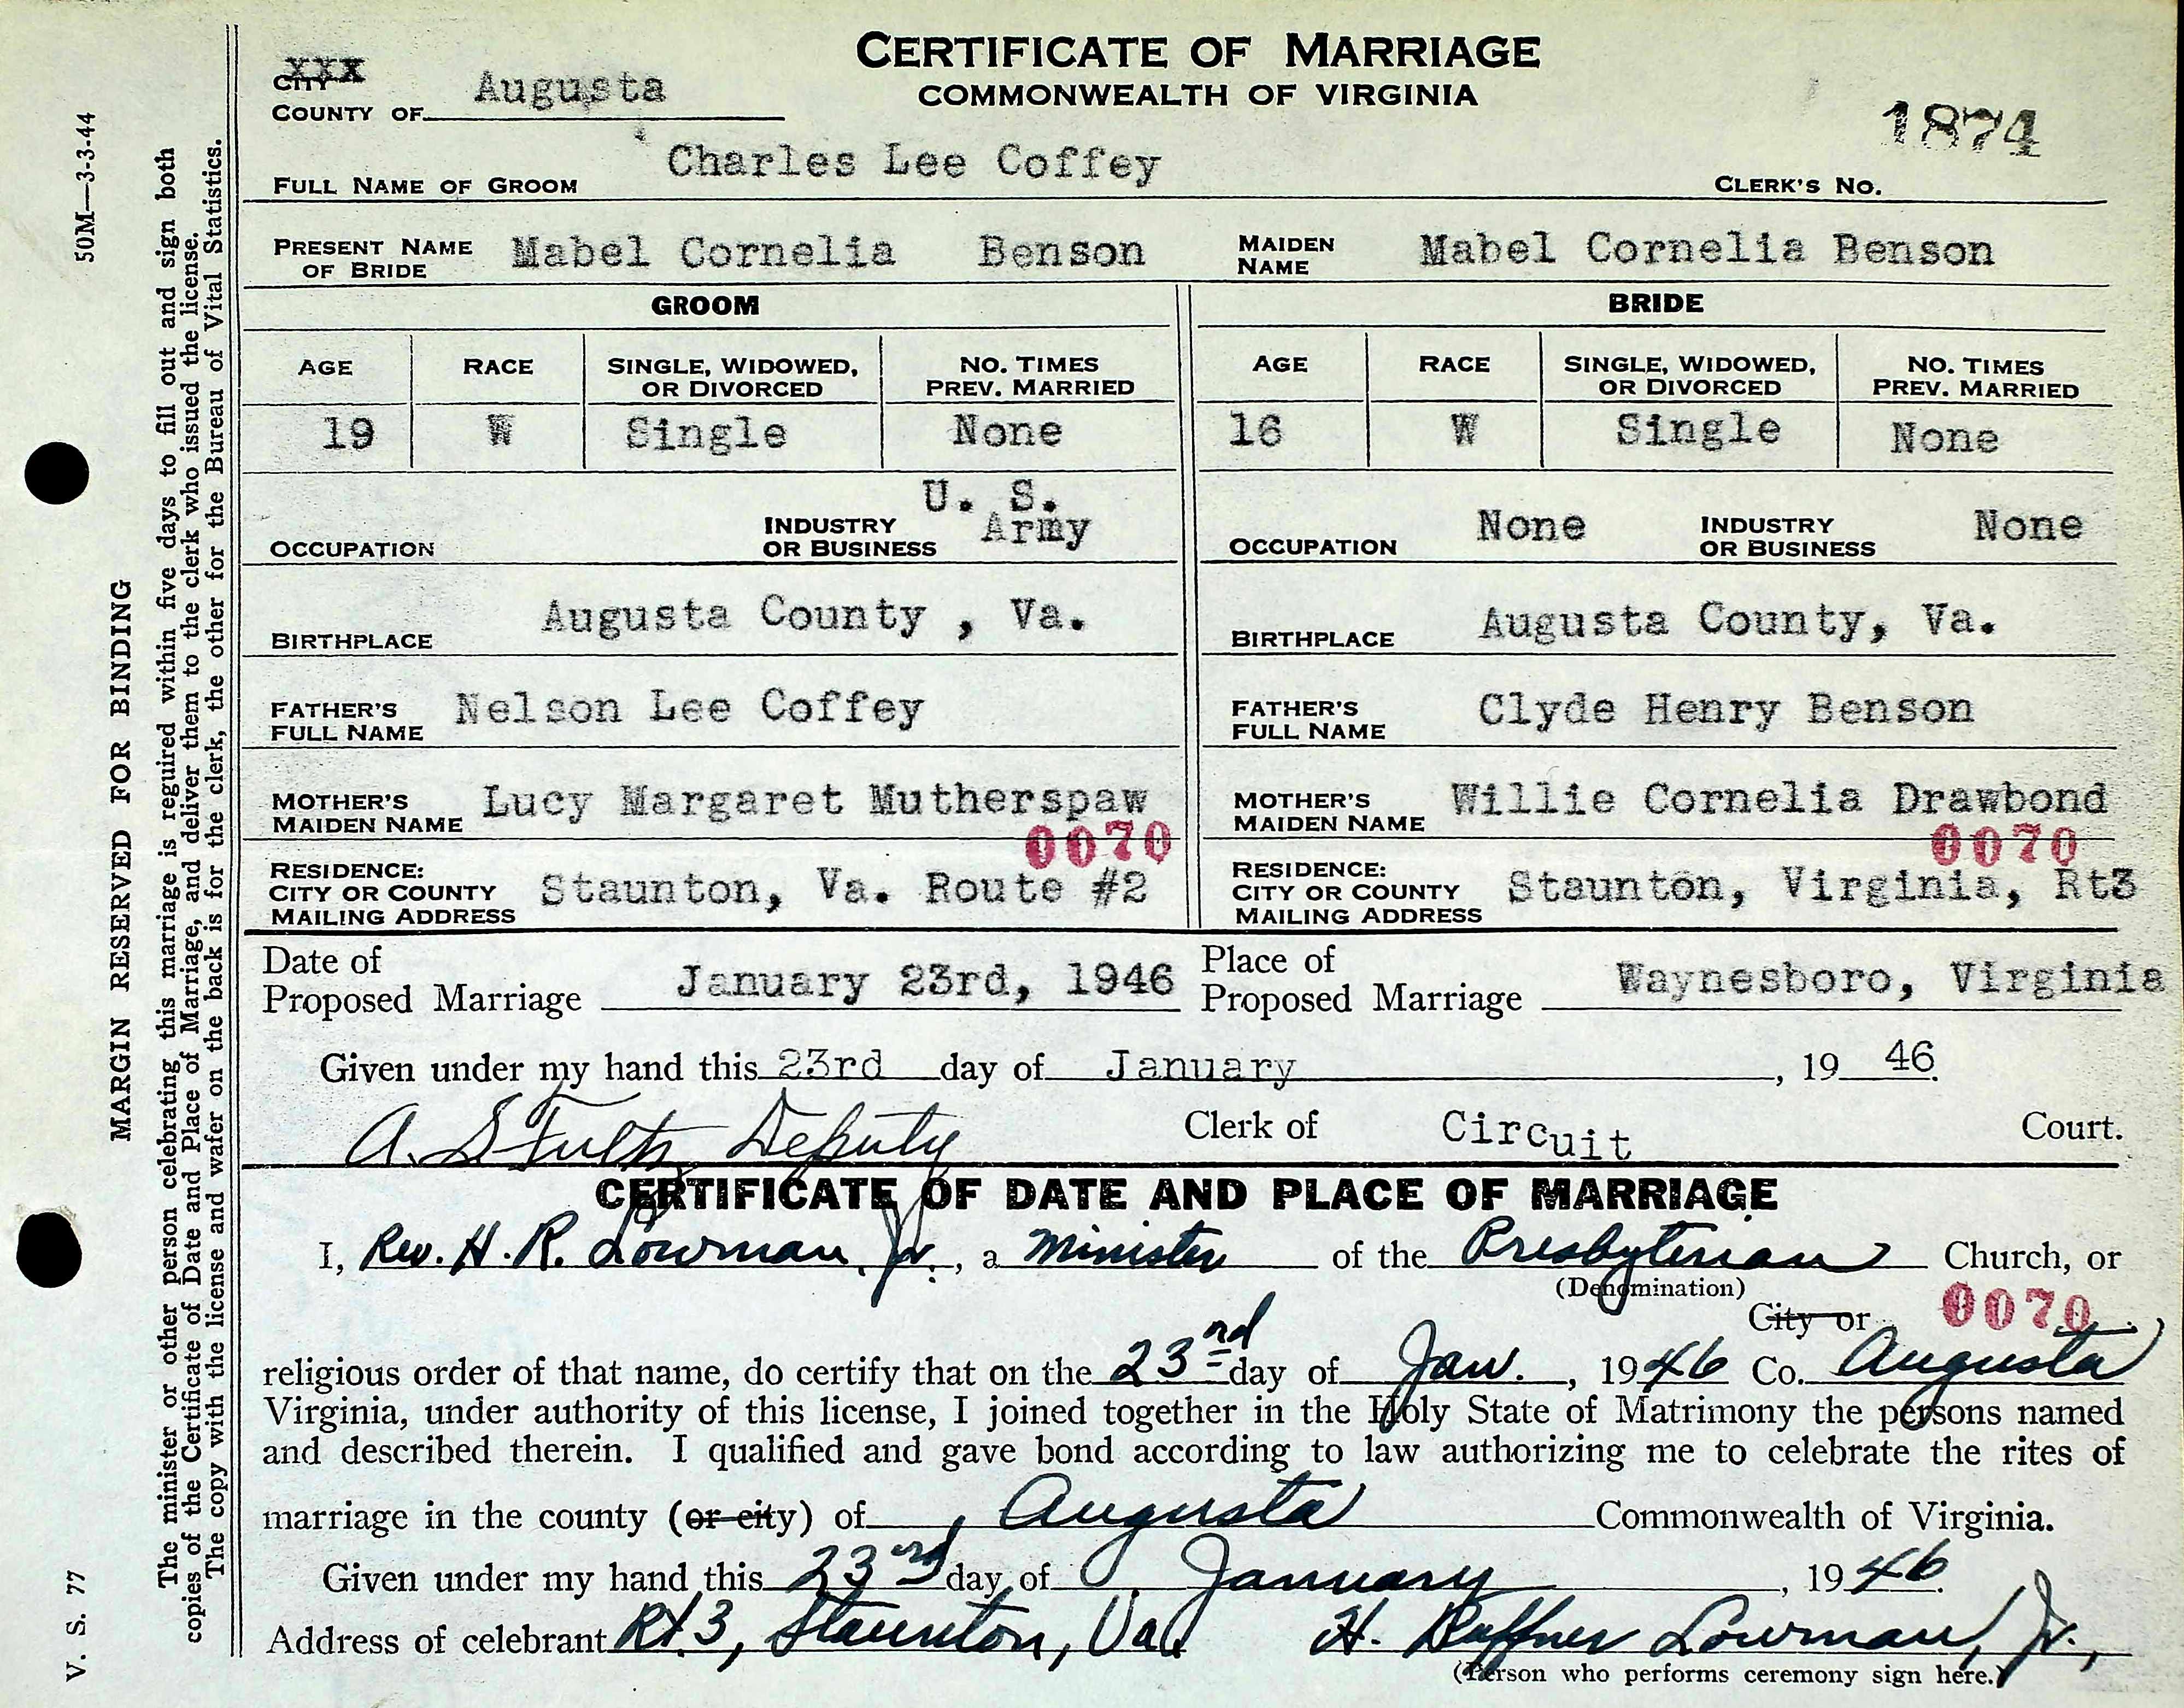 CERTIFICATE OF MARRIAGE
COMMONWEALTH OF VIRGINIA
XXX
CITY
COUNTY OF Augusta
1874
FULL NAME OF GROOM Charles Lee Coffey CLERK'S NO.
PRESENT NAME OF BRIDE Mabel Cornelia Benson MAIDEN NAME Mabel Cornelia Benson
GROOM BRIDE
AGE RACE SINGLE, WIDOWED, OR DIVORCED NO. TIMES PREV. MARRIED AGE RACE SINGLE, WIDOWED, OR DIVORCED NO. TIMES PREV. MARRIED
19 W Single None 16 W Single None
OCCUPATION INDUSTRY OR BUSINESS U. S. Army OCCUPATION None INDUSTRY OR BUSINESS None
BIRTHPLACE Augusta County , Va. BIRTHPLACE Augusta County, Va.
FATHER'S FULL NAME Nelson Lee Coffey FATHER'S FULL NAME Clyde Henry Benson
MOTHER'S MAIDEN NAME Lucy Margaret Mutherspaw MOTHER'S MAIDEN NAME Willie Cornelia Drawbond
0070 0070
RESIDENCE: CITY OR COUNTY MAILING ADDRESS Staunton, Va. Route #2 RESIDENCE: CITY OR COUNTY MAILING ADDRESS Staunton, Virginia, Rt3
Date of Proposed Marriage January 23rd, 1946 Place of Proposed Marriage Waynesboro, Virginia
Given under my hand this 23rd day of January, 19 46.
A. S Fultz, Deputy Clerk of Circuit Court.
CERTIFICATE OF DATE AND PLACE OF MARRIAGE
I, Rev. H. R. Lowman, Jr., a Minister of the Presbyterian Church, or
(Denomination)
City or 0070
religious order of that name, do certify that on the 23rd day of Jan., 1946 Co. Augusta
Virginia, under authority of this license, I joined together in the Holy State of Matrimony the persons named
and described therein. I qualified and gave bond according to law authorizing me to celebrate the rites of
marriage in the county (or city) of Augusta Commonwealth of Virginia.
Given under my hand this 23rd day of January, 1946.
Address of celebrant Rt 3, Staunton, Va. H. Ruffner Lowman, Jr.,
(Person who performs ceremony sign here.)
50M—3-3-44
MARGIN RESERVED FOR BINDING
V. S. 77
The minister or other person celebrating this marriage is required within five days to fill out and sign both
copies of the Certificate of Date and Place of Marriage, and deliver them to the clerk who issued the license.
The copy with the license and wafer on the back is for the clerk, the other for the Bureau of Vital Statistics.